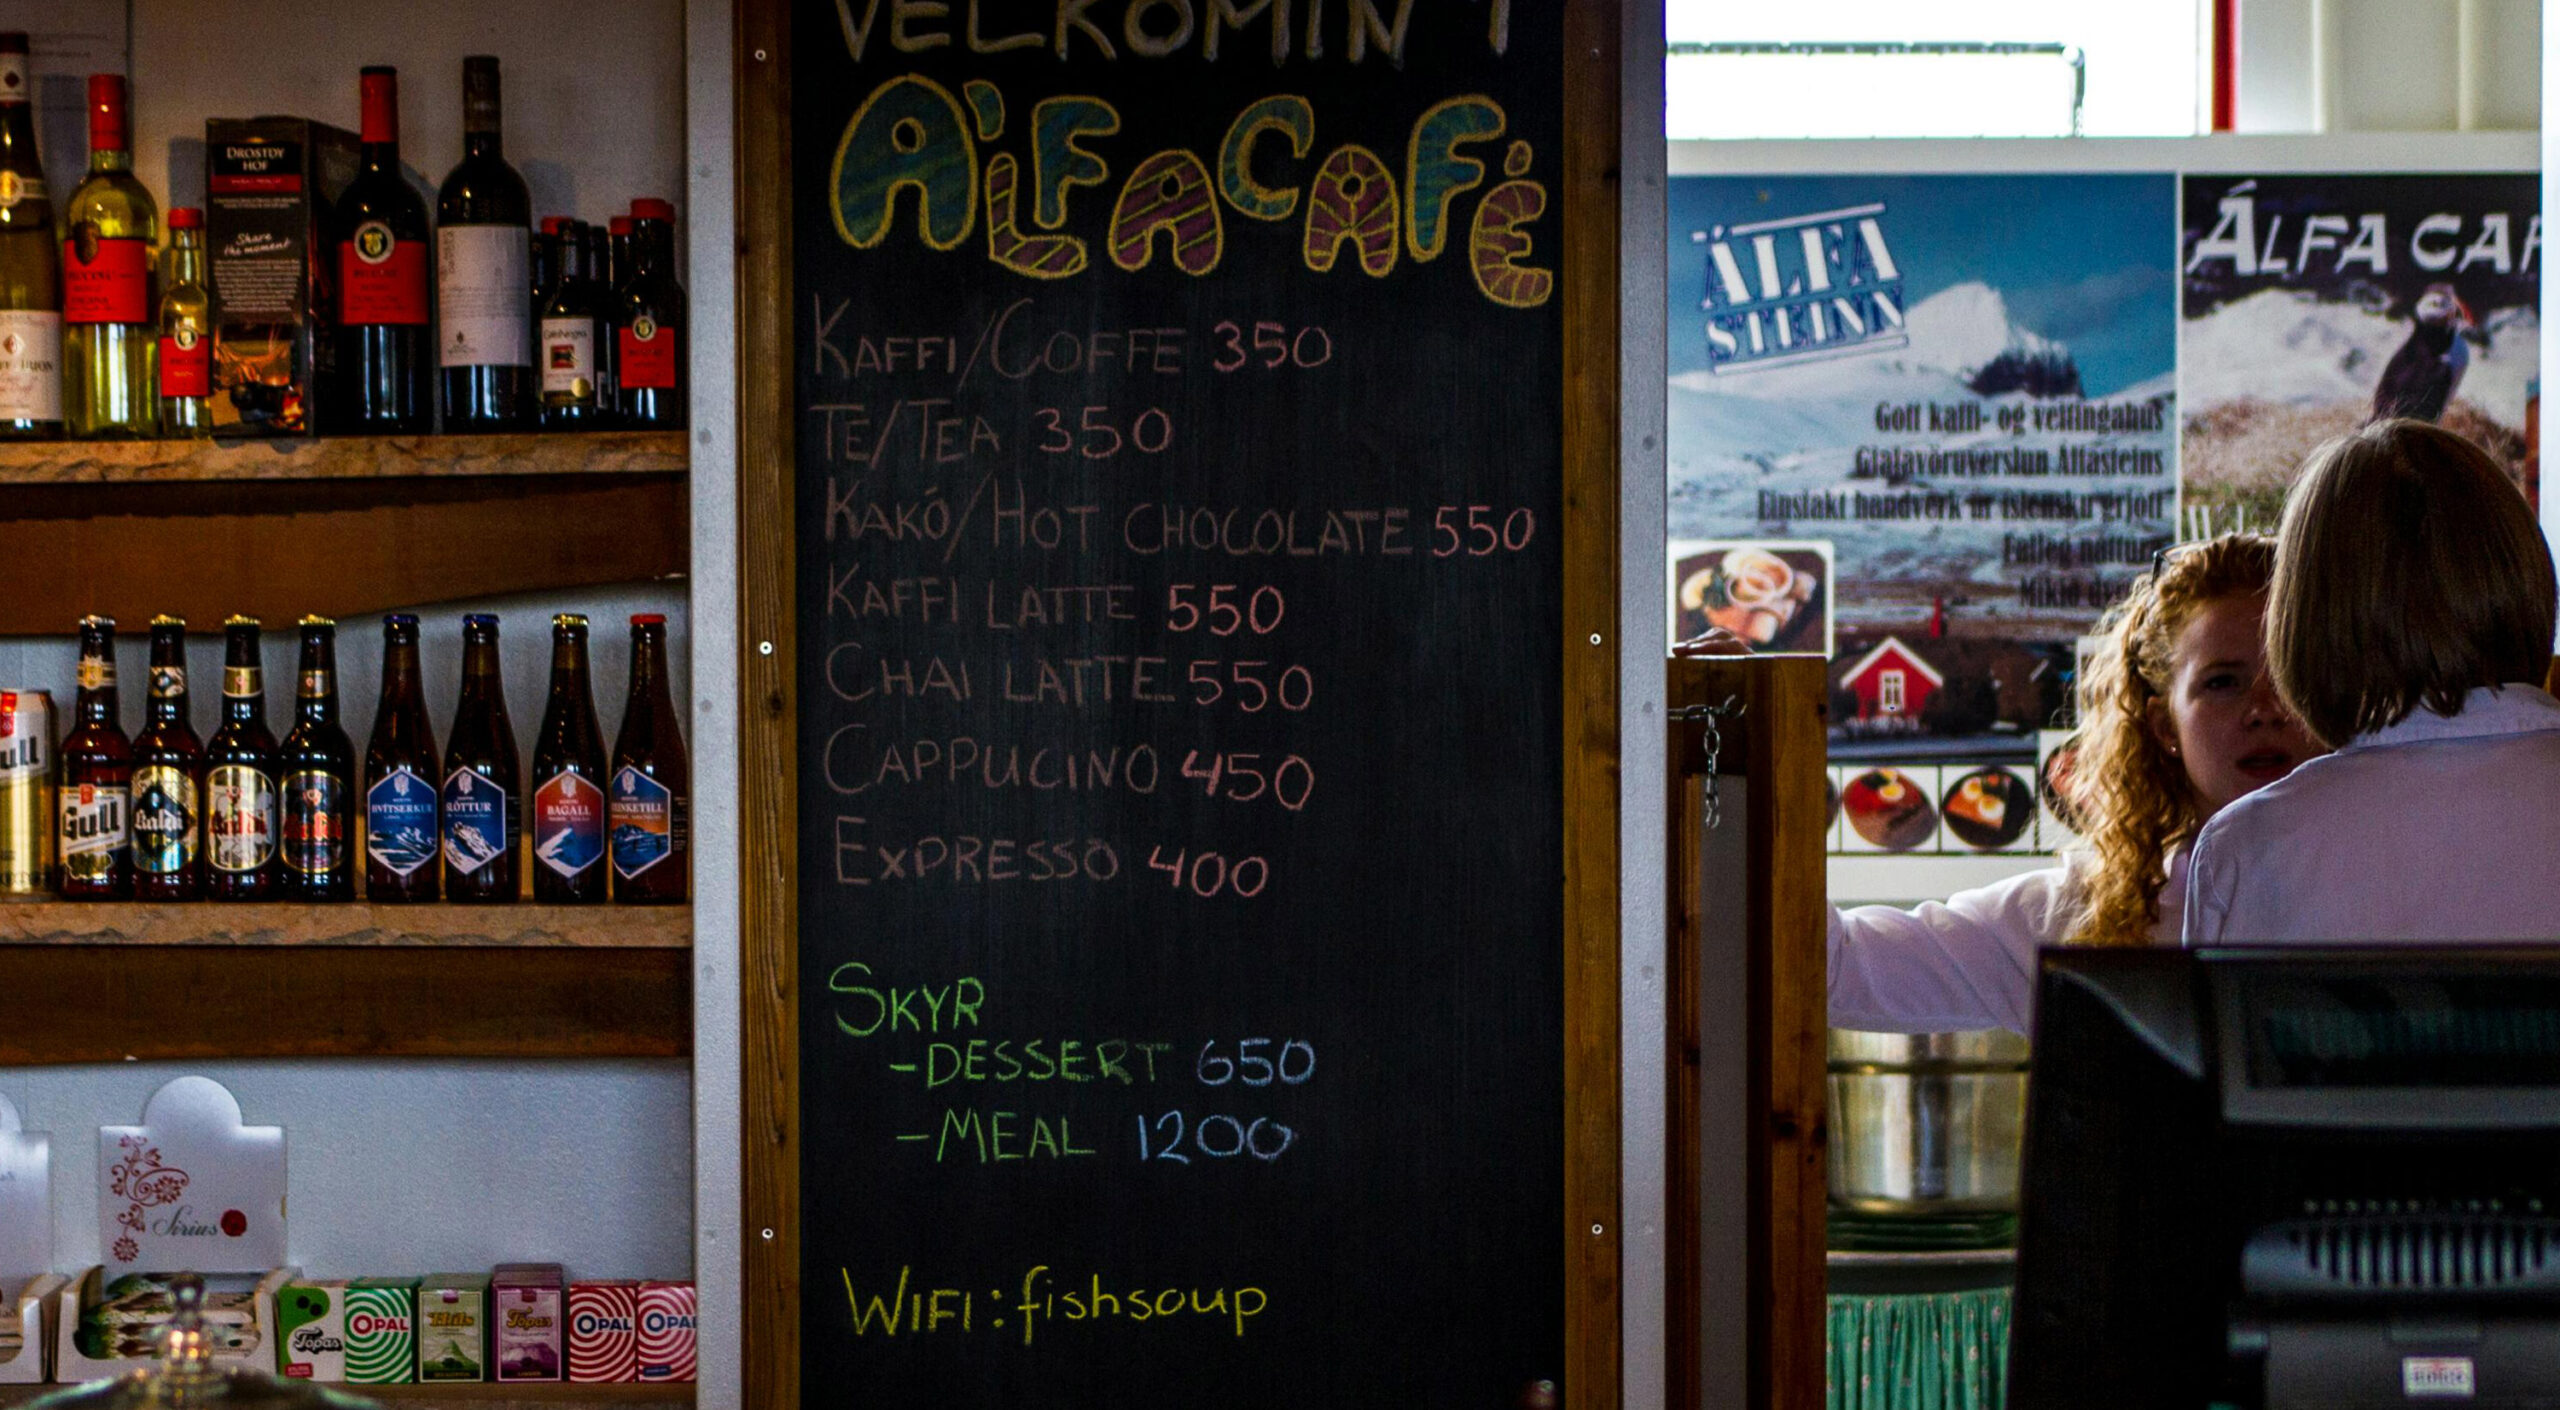 VELKOMIN Í
ÁLFACAFÉ
KAFFI/COFFE 350
TE/TEA 350
KAKÓ/HOT CHOCOLATE 550
KAFFI LATTE 550
CHAI LATTE 550
CAPPUCINO 450
EXPRESSO 400
SKYR
-DESSERT 650
-MEAL 1200
WIFI: fishsoup
DROSTDY
HOF
Share
the moment
Gull
HVÍTSERKUR
SLÓTTUR
BAGALL
Sirius
Topas
OPAL
Topas
OPAL
OPAL
ÁLFA
STEINN
Gott kaffi- og veitingahús
Gjafavöruverslun Álfasteins
Einstakt handverk úr íslensku grjóti
ÁLFA CAF